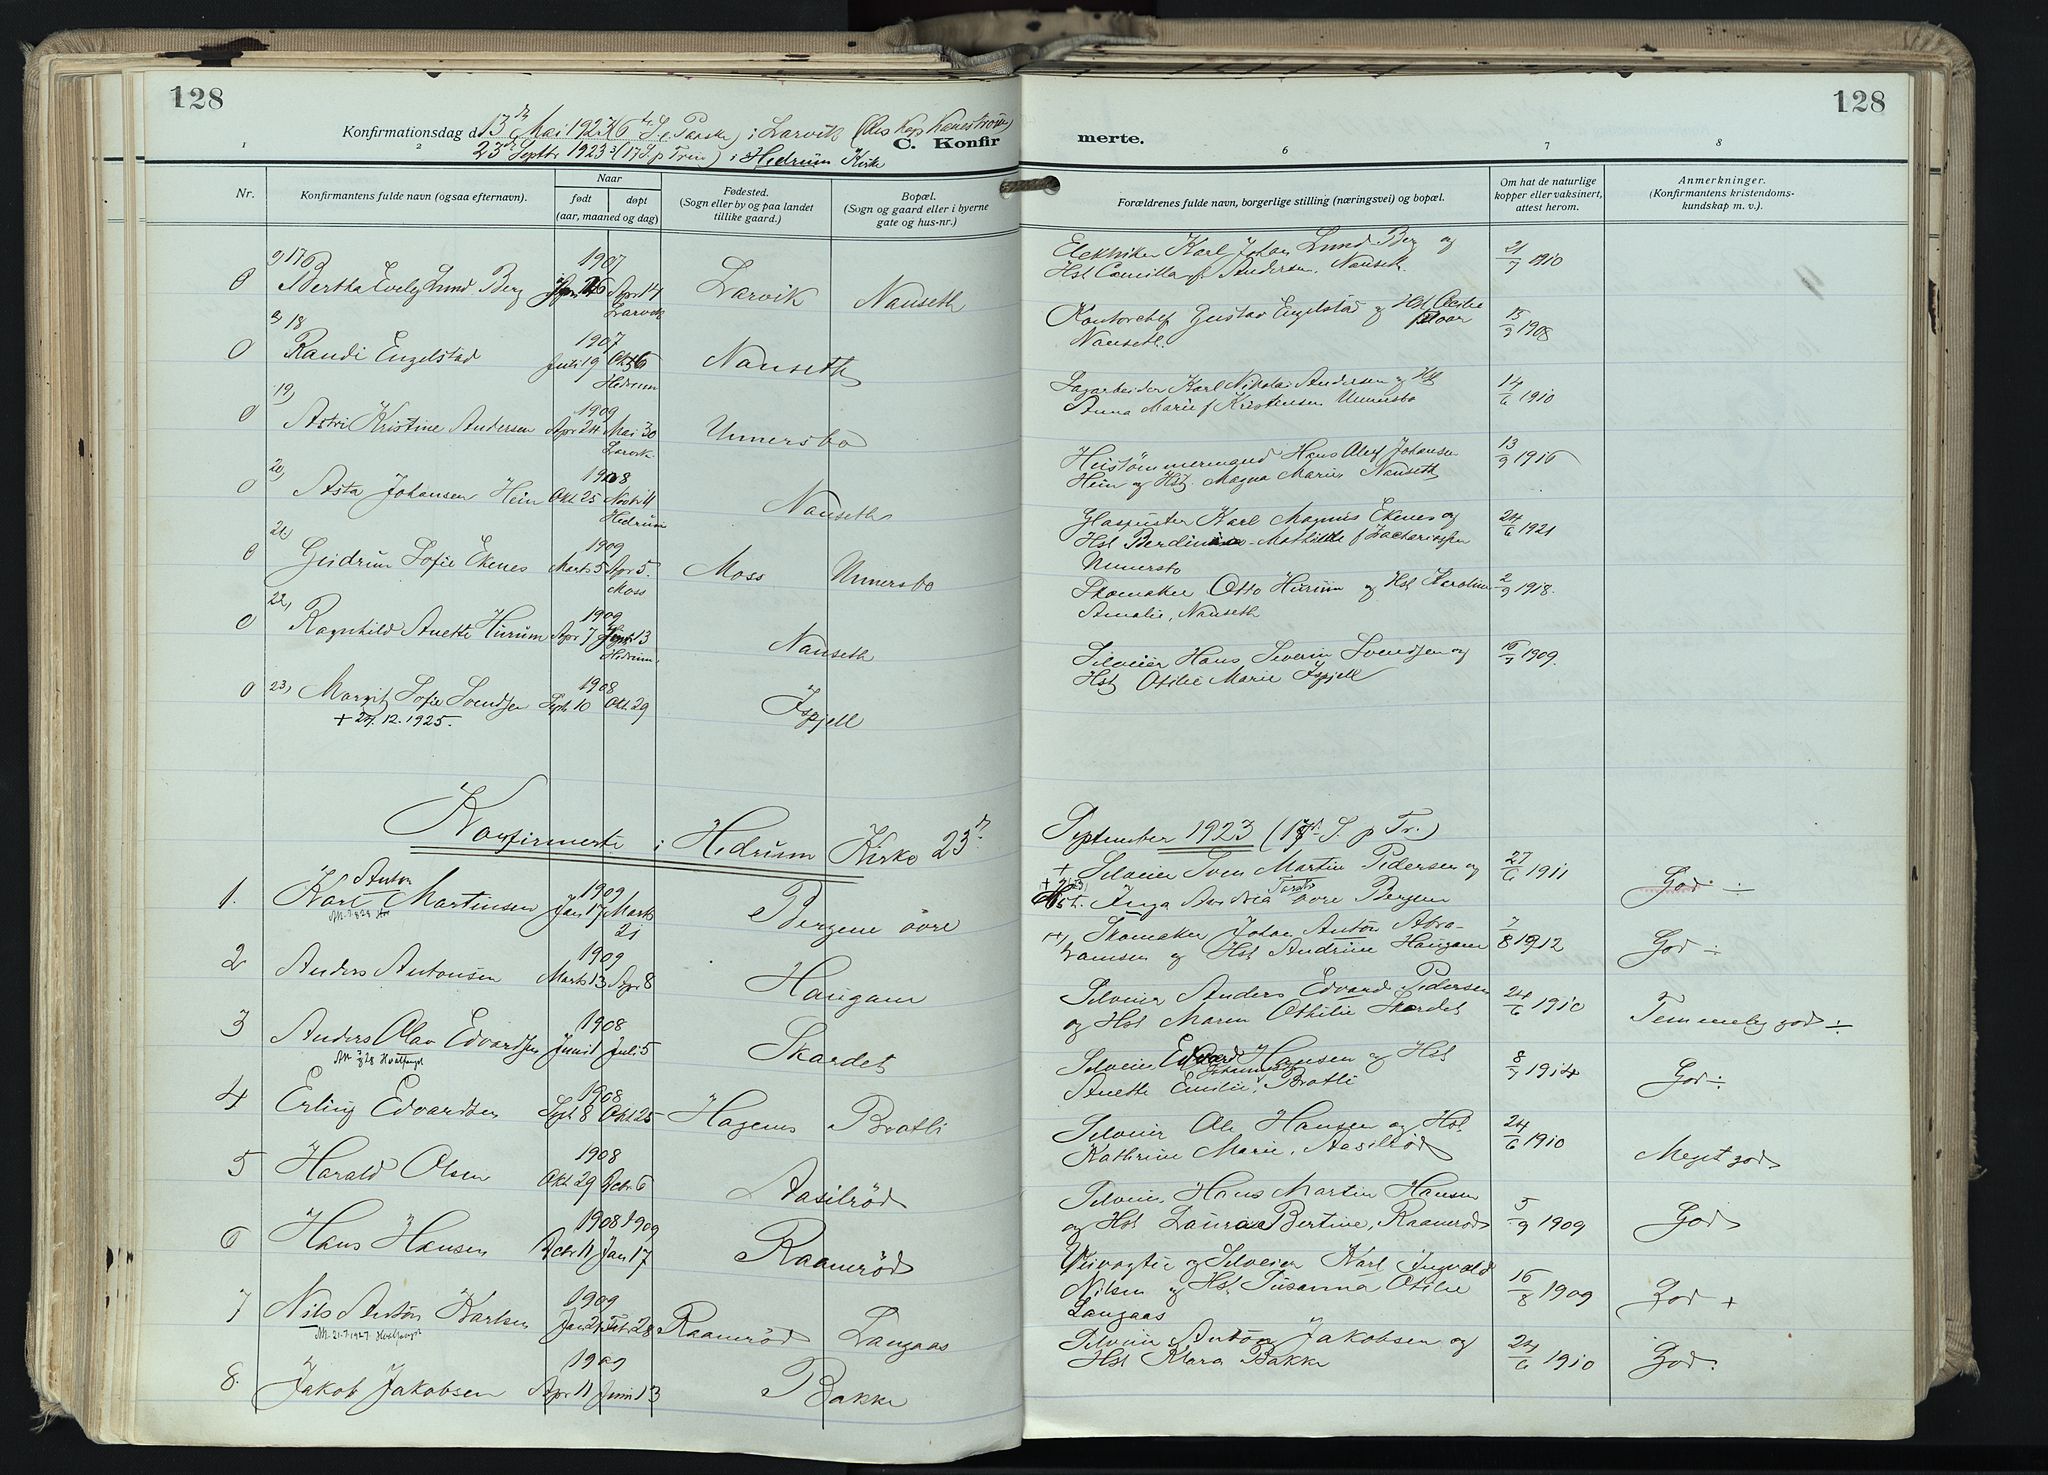 128
128
Konfirmationsdag d. 13de Mai 1923 (6te S. e. Paaske) i Larvik
23de Septbr 1923 (17 S p Trin) i Hedrum Kirke
C. Konfir
merte.
1
2
6
7
8
Nr.
Konfirmantens fulde navn (ogsaa efternavn).
Naar
født
døpt
(aar, maaned og dag)
Fødested.
(Sogn eller by og paa landet
tillike gaard.)
Bopæl.
(Sogn og gaard eller i byerne
gate og hus-nr.)
Forældrenes fulde navn, borgerlige stilling (næringsvei) og bopæl.
Om hat de naturlige
kopper eller vaksinert,
attest herom.
Anmerkninger.
(Konfirmantens kristendoms-
kundskap m. v.)
17
1907
0 Bertha Evely Lund Berg 26 Apr 14 Larvik Nanseth
Larvik
Elektriker Karl Johan Lund Berg og
Hst Camilla f. Andersen, Nanseth.
21/7 1910
18
1907
0 Randi Engelstad Juli 19 Okt 6 Nanseth
Hedrum
Kontorchef Gustav Engelstad og Hst Cecilie
Nanseth.
15/9 1908
19)
1909
0 Astri Kristine Andersen Apr 24 Mai 30 Unnersbo
Larvik
Sagarbeider Karl Nikolai Andersen og Hst
Anna Marie f Kristensen Unnersbo
14/6 1910
20)
1908
0 Asta Johansen Hein Okt 25 Novbr 4 Nanseth
Hedrum
Hustømmermand Hans Olaf Johansen
Hein og Hst. Magna Marie, Nanseth
13/9 1916
21)
1909
0 Gudrun Sofie Ekenes Marts 5 Apr 5. Moss Unnersbo
Moss
Glaspuster Karl Magnus Ekenes og
Hst Berdine Mathilde f Zachariassen
Unnersbo
24/6 1921
22,
1909
0 Ragnhild Anette Hurum Apr 7 Juni 13 Nanseth
Hedrum
Skomaker Otto Hurum og Hst Karoline
Amalie, Nanseth
2/9 1918.
1908
0 23, Margit Sofie Svendsen Sept 10 Okt. 29 Ispjell
+ 24.12.1925.
Selveier Hans Severin Svendsen og
Hst Otilie Marie Ispjell
16/7 1909.
Konfirmerte i Hedrum Kirke 23de
September 1923 (17de S. p Tr.)
1909
1. Karl Anton Martinsen Jan 17 Marts Bergene øvre
21
+ Selveier Sven Martin Pedersen og
Hst. Inga Andrea øvre Bergene
27/6 1911
God ÷
1909
2 Anders Antonsen Marts 13 Apr 8 Haugam
Skomaker Johan Anton Abra-
hamsen og Hst Andrine Haugam
7/8 1912
God ÷
1908
3 Anders Olav Edvardsen Juni 1 Juli 5 Skardet
Selveier Anders Edvard Pedersen
og Hst Maren Othilie Skardet
24/6 1910
Temmelig god ÷
1908
4 Erling Edvardsen Sept 8 Okt 25 Hagenes Bratli
Selveier Edvard Hansen og Hst
Anette Emilie, Bratli
8/7 1914
God ÷
1908
5 Harald Olsen Okt 29 Decbr. 6 Aasilrød
Selveier Ole Hansen og Hst.
Kathrine Marie, Aasilrød
24/6 1910
Meget god
1908 1909
6 Hans Hansen Decbr 11 Jan 17 Raamrød
Selveier Hans Martin Hansen
og Hst Laura Bertine, Raamrød
5/9 1909
God
1909
7 Nils Anton Karlsen Jan 21 Febr 28 Raamrød Langaas
Veivogter og Selveier Karl Ingvald
Nilsen og Hst. Susanna Otilie
Langaas
16/8 1909
God +
1909
8. Jakob Jakobsen Apr 11 Juni 13 Bakke
Selveier Anton Jakobsen og
Hst Klara Bakke
24/6 1910
God.